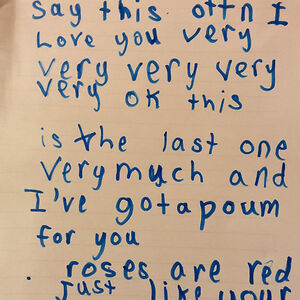 say this ottn I
Love you very
very very very
very ok this
is the last one
very much and
I've got a poum
for you
. roses are red
just like your